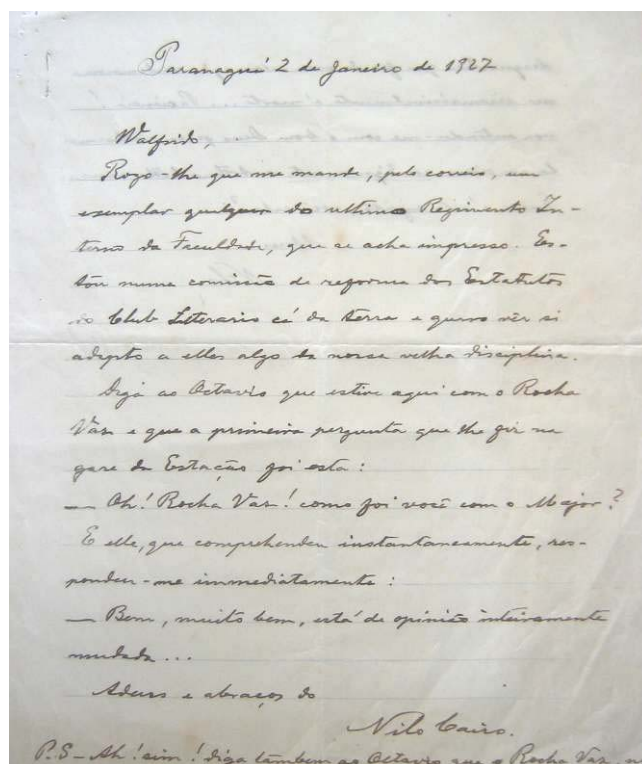 Paranaguá 2 de Janeiro de 1927
Walfrido,
Rogo-lhe que me mande, pelo correio, um
exemplar qualquer do ultimo Regimento In-
terno da Faculdade, que se acha impresso. Es-
tou numa comissão de reforma dos Estatutos
do Club Litterario cá da terra e quero vêr si
adapto a elles algo da nossa velha disciplina.
Diga ao Octavio que estive aqui com o Rocha
Vaz e que a primeira pergunta que lhe fiz na
gare da Estação foi esta:
— Oh! Rocha Vaz! como foi você com o Major?
E elle, que comprehendeu instantaneamente, res-
pondeu-me immediatamente:
— Bem, muito bem, está de opinião inteiramente
mudada...
Adeus e abraços do
Nilo Cairo.
P.S – Ah! sim! diga tambem ao Octavio que o Rocha Vaz,